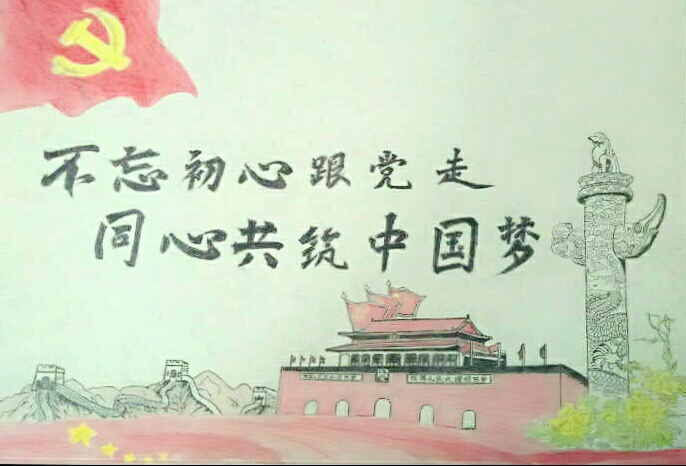 不忘初心跟党走
同心共筑中国梦